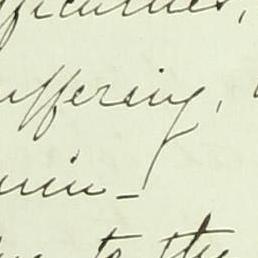 fficulties,
uffering,
min-
to the